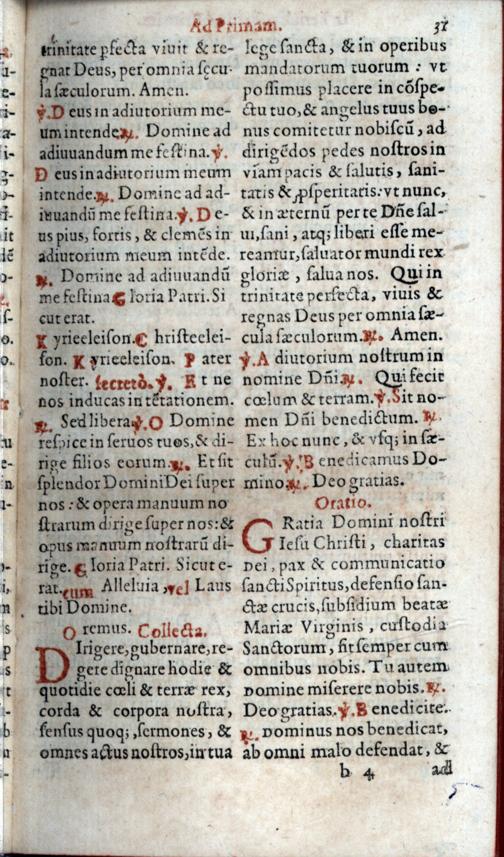 Ad Primam. 31
trinitate pſecta viuit & re-
gnat Deus, per omnia ſęcu-
la ſæculorum. Amen.
℣. Deus in adiutorium me-
um intende ℟. Domine ad
adiuuandum me feſtina. ℣.
Deus in adiutorium meum
intende. ℟. Domine ad ad-
iuuandū me feſtina. ℣. De-
us pius, fortis, & clemēs in
adiutorium meum intēde.
℟. Domine ad adiuuandū
me feſtina Gloria Patri. Si
cut erat.
Kyrieeleiſon. Chriſteelei-
ſon. Kyrieeleiſon. Pater
noſter. ſecretò. ℣. Et ne
nos inducas in tētationem.
℟. Sed libera ℣. O Domine
reſpice in ſeruos tuos, & di-
rige filios eorum. ℟. Et ſit
ſplendor Domini Dei ſuper
nos: & opera manuum no
ſtrarum dirige ſuper nos: &
opus manuum noſtrarū di-
rige. Gloria Patri. Sicut e-
rat. cum Alleluia, vel Laus
tibi Domine.
Oremus. Collecta.
DIrigere, gubernare, re-
gere dignare hodie &
quotidie cœli & terræ rex,
corda & corpora noſtra,
ſenſus quoq;, ſermones, &
omnes actus noſtros, in tua
lege ſancta, & in operibus
mandatorum tuorum: vt
poſſimus placere in cōſpe-
ctu tuo, & angelus tuus bo-
nus comitetur nobiſcū, ad
dirigēdos pedes noſtros in
viam pacis & ſalutis, ſani-
tatis & ꝓſperitatis: vt nunc,
& in æternū per te Dñe ſal-
ui, ſani, atq; liberi eſſe me-
reamur, ſaluator mundi rex
gloriæ, ſalua nos. Qui in
trinitate perfecta, viuis &
regnas Deus per omnia ſæ-
cula ſæculorum. ℟. Amen.
℣. Adiutorium noſtrum in
nomine Dñi. ℟. Qui fecit
cœlum & terram. ℣. Sit no-
men Dñi benedictum. ℟.
Ex hoc nunc, & vſq; in ſæ-
culū. ℣. Benedicamus Do-
mino. ℟. Deo gratias.
Oratio.
GRatia Domini noſtri
Ieſu Chriſti, charitas
Dei, pax & communicatio
ſancti Spiritus, defenſio ſan-
ctæ crucis, ſubſidium beatæ
Mariæ Virginis, cuſtodia
Sanctorum, ſit ſemper cum
omnibus nobis. Tu autem
Domine miſerere nobis. ℟.
Deo gratias. ℣. Benedicite.
℟. Dominus nos benedicat,
ab omni malo defendat, &
b 4 ad
5